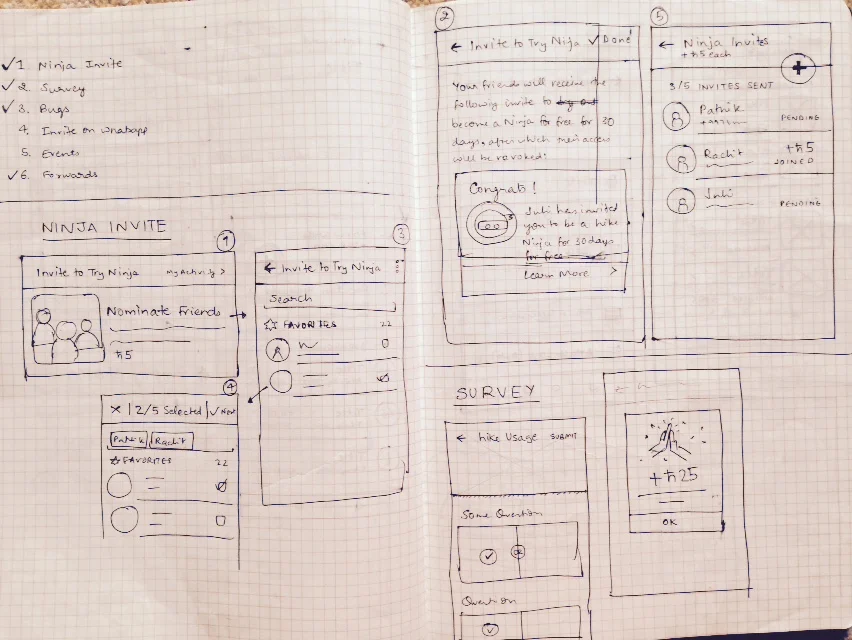 ✓1. Ninja Invite
✓2. Survey
✓3. Bugs
4. Invite on whatsapp
5. Events
✓6. Forwards
NINJA INVITE
1
Invite to Try Ninja My Activity >
Nominate Friends
ħ5
3
← Invite to Try Ninja
Search
☆ FAVORITES 22
4
× | 2/5 Selected | ✓ Next
Patnik Rachit
☆ FAVORITES 22
2
← Invite to Try Nija ✓ Done
Your friends will receive the
following invite to try out
become a Ninja for free for 30
days, after which their access
will be revoked:
Congrats!
Juhi has invited
you to be a hike
Ninja for 30 days
for free
Learn More >
5
← Ninja Invites
+ħ5 each
+
3/5 INVITES SENT
Patnik
PENDING
Rachit +ħ5
JOINED
Juhi
PENDING
SURVEY
← hike Usage SUBMIT
Some Question
OK
Question
+ħ25
OK